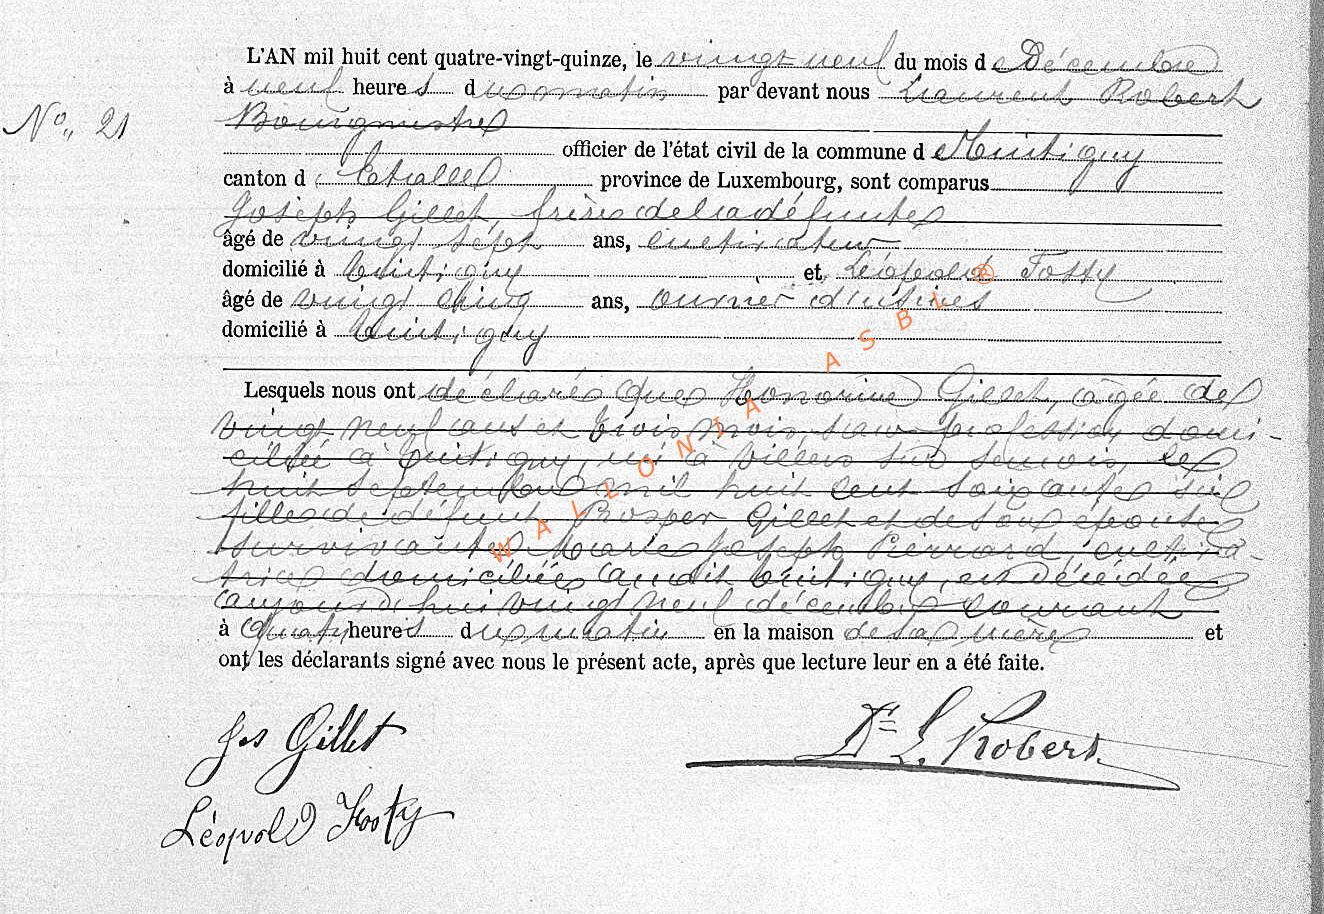 L'AN mil huit cent quatre-vingt-quinze, le vingt neuf du mois de Décembre
à neuf heures du matin par devant nous Laurent Robert
No., 21
Bourgmestre
officier de l'état civil de la commune de Tintigny
canton d'Etalle province de Luxembourg, sont comparus
Joseph Gillet, frère de la défunte
âgé de vingt sept ans, cultivateur
domicilié à Tintigny et Léopold Fosty
âgé de vingt cinq ans, ouvrier d'usines
domicilié à Tintigny
Lesquels nous ont déclaré que Honorine Gillet, âgée de
vingt neuf ans et trois mois, sans profession domi-
ciliée à Tintigny, née à Villers sur Semois, le
huit septembre mil huit cent soixante six
fille de défunt Prosper Gillet et de son épouse
survivante Marie Joseph Pierrard, cultiva-
trice domiciliée audit Tintigny, est décédée
aujourd'hui vingt neuf décembre courant
à quatre heures du matin en la maison de sa mère et
ont les déclarants signé avec nous le présent acte, après que lecture leur en a été faite.
Jos Gillet
Dr L. Robert
Léopold Fosty
WALLONIA ASBL ®